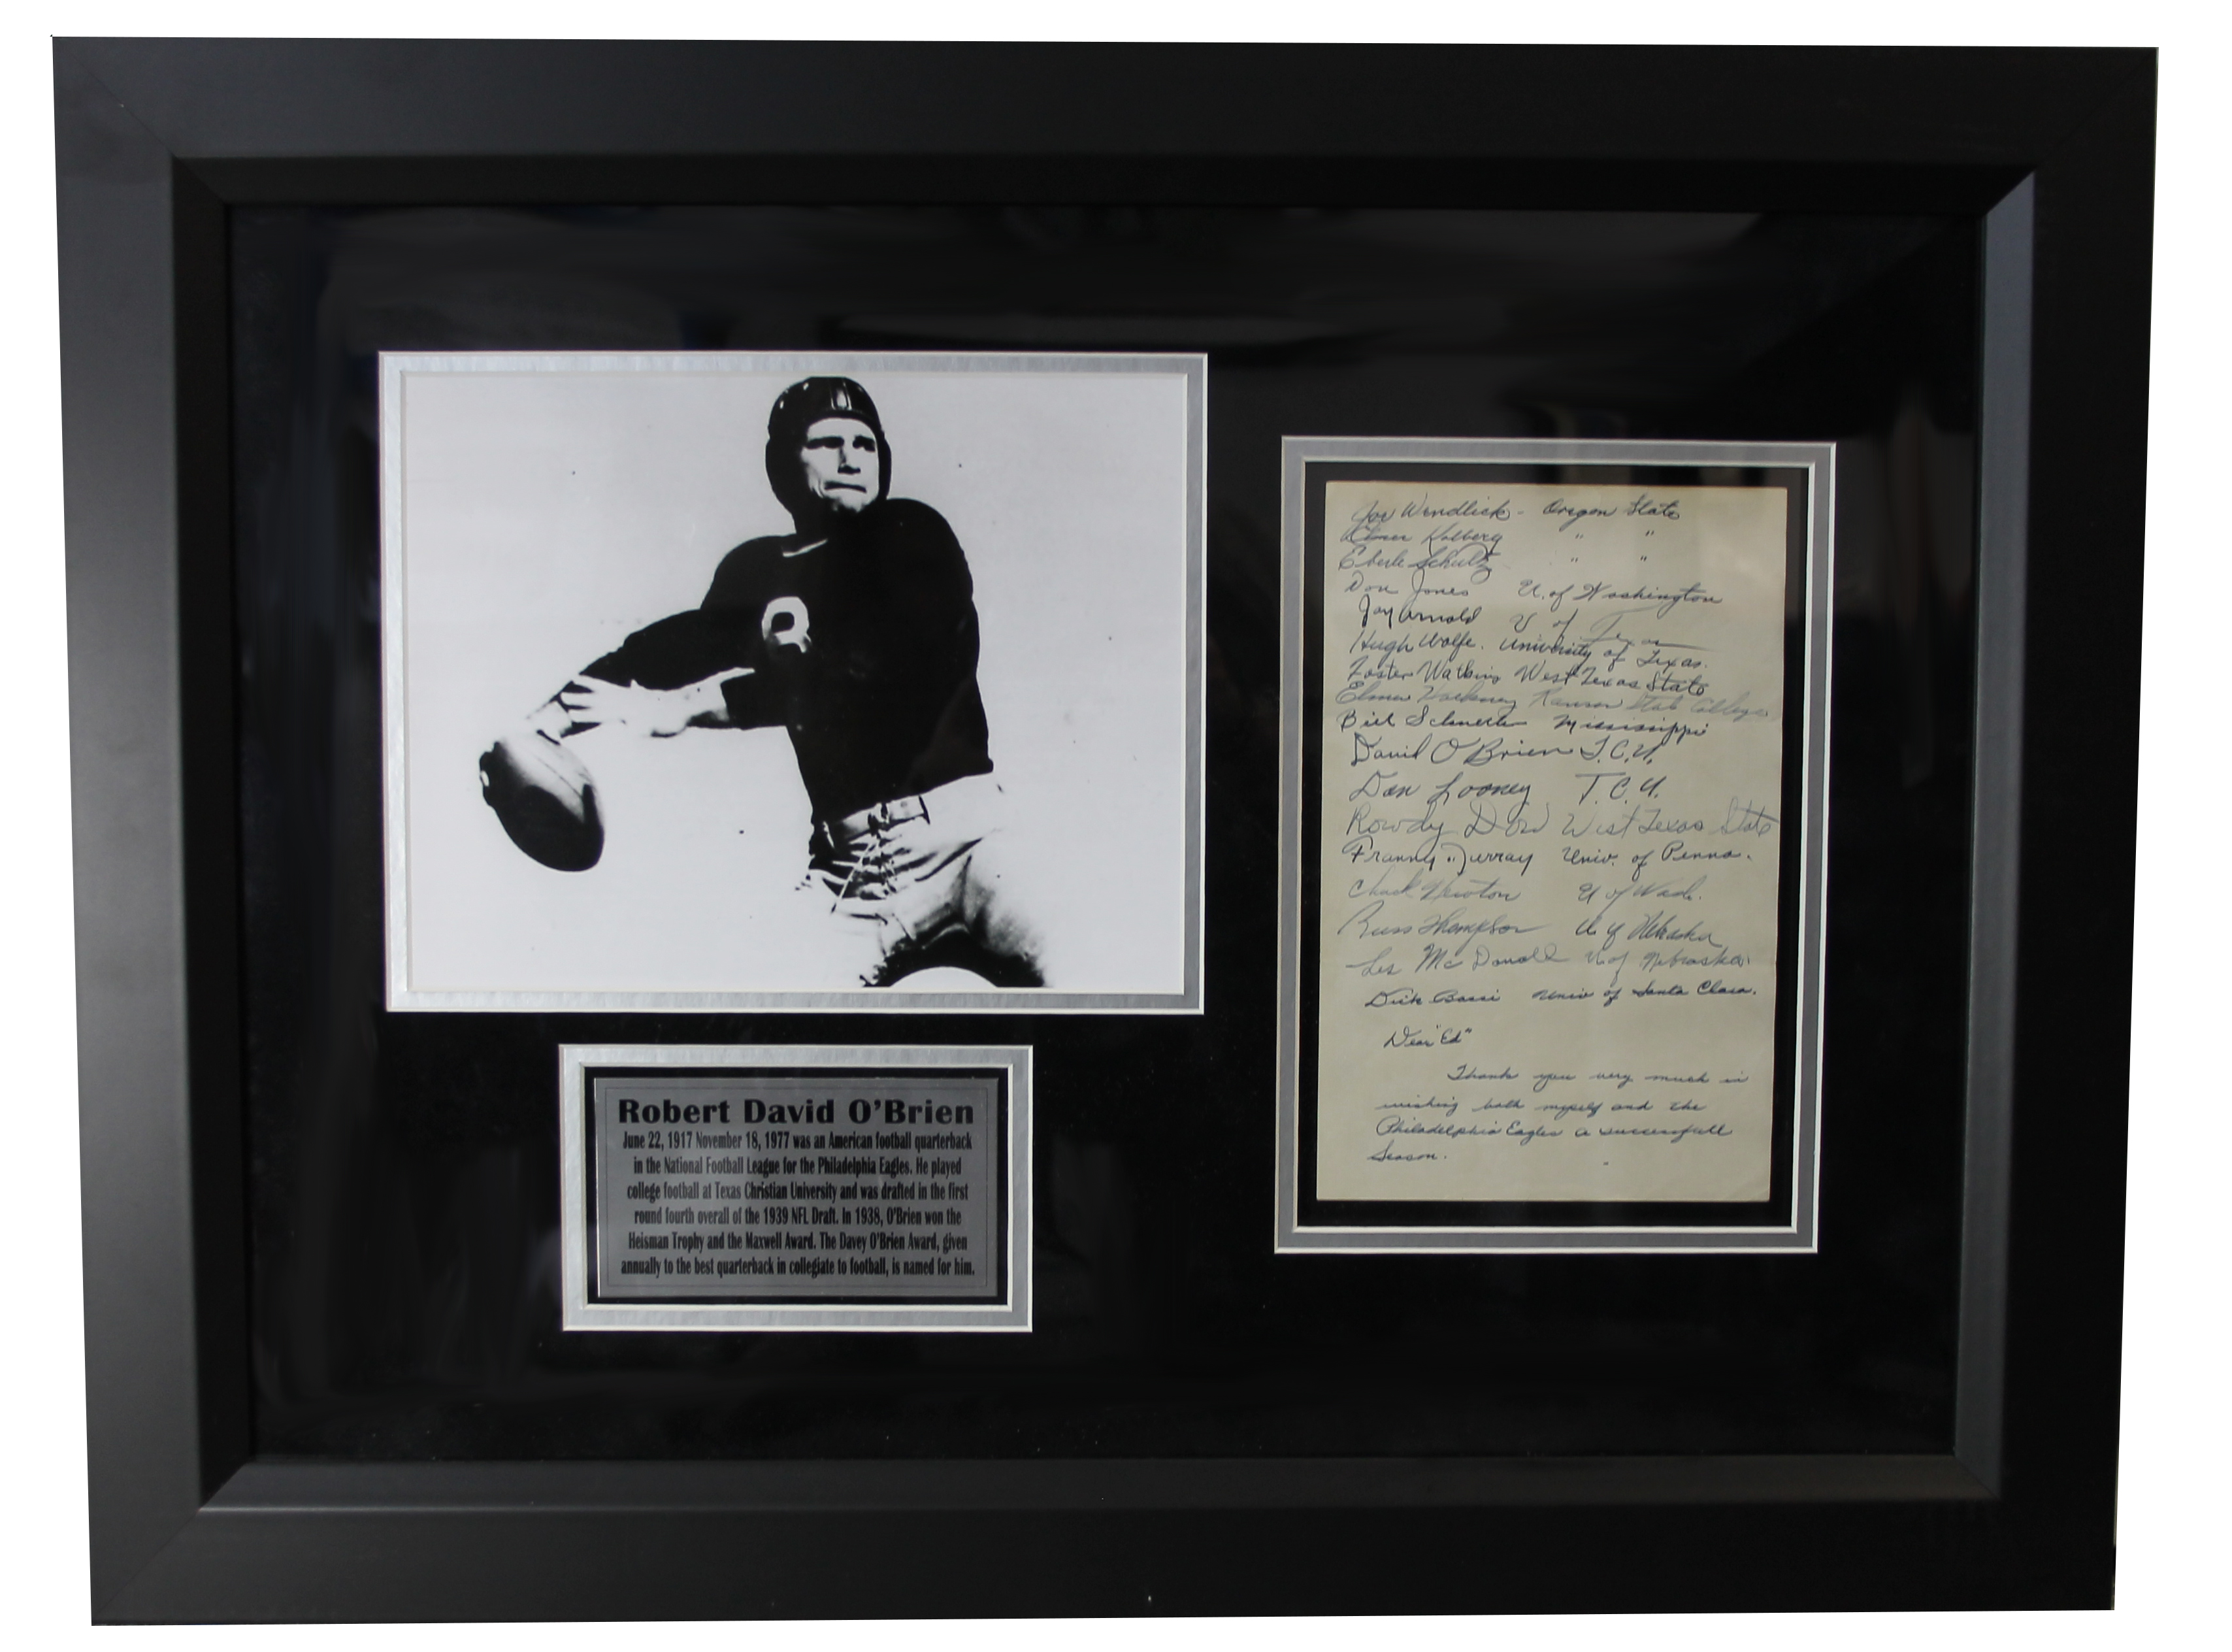 Robert David O'Brien
June 22, 1917 November 18, 1977 was an American football quarterback
in the National Football League for the Philadelphia Eagles. He played
college football at Texas Christian University and was drafted in the first
round fourth overall of the 1939 NFL Draft. In 1938, O'Brien won the
Heisman Trophy and the Maxwell Award. The Davey O'Brien Award, given
annually to the best quarterback in collegiate to football, is named for him.
Joe Wendlick - Oregon State
Elmer Kolberg " "
Eberle Schultz " "
Don Jones U. of Washington
Jay Arnold U of Texas
Hugh Wolfe. University of Texas.
Foster Watkins West Texas State
Elmer Hackney Kansas State College
Bill Schneller Mississippi
David O'Brien T.C.U.
Don Looney T.C.U.
Rowdy Dow West Texas State
Franny Murray Univ. of Penna.
Chuck Newton U of Wash.
Russ Thompson U of Nebraska
Les McDonald U of Nebraska.
Dick Bassi Univ of Santa Clara.
Dear "Ed"
Thank you very much in
wishing both myself and the
Philadelphia Eagles a successfull
Season.